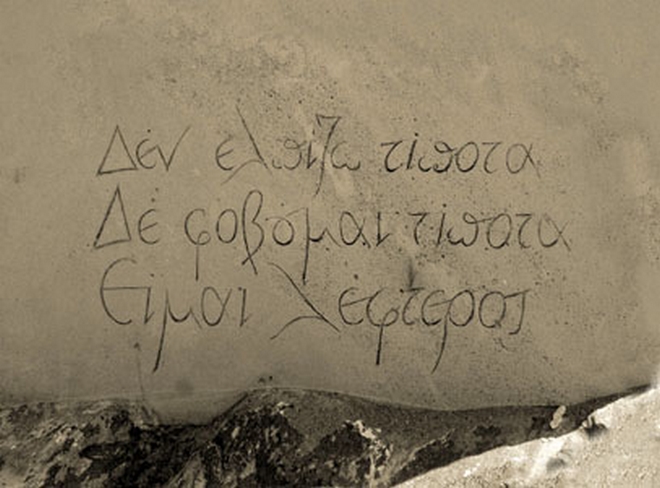 Δέν ελπιζω τίποτα
Δέ φοβόμαι τίποτα
Ειμαι λέφτερος